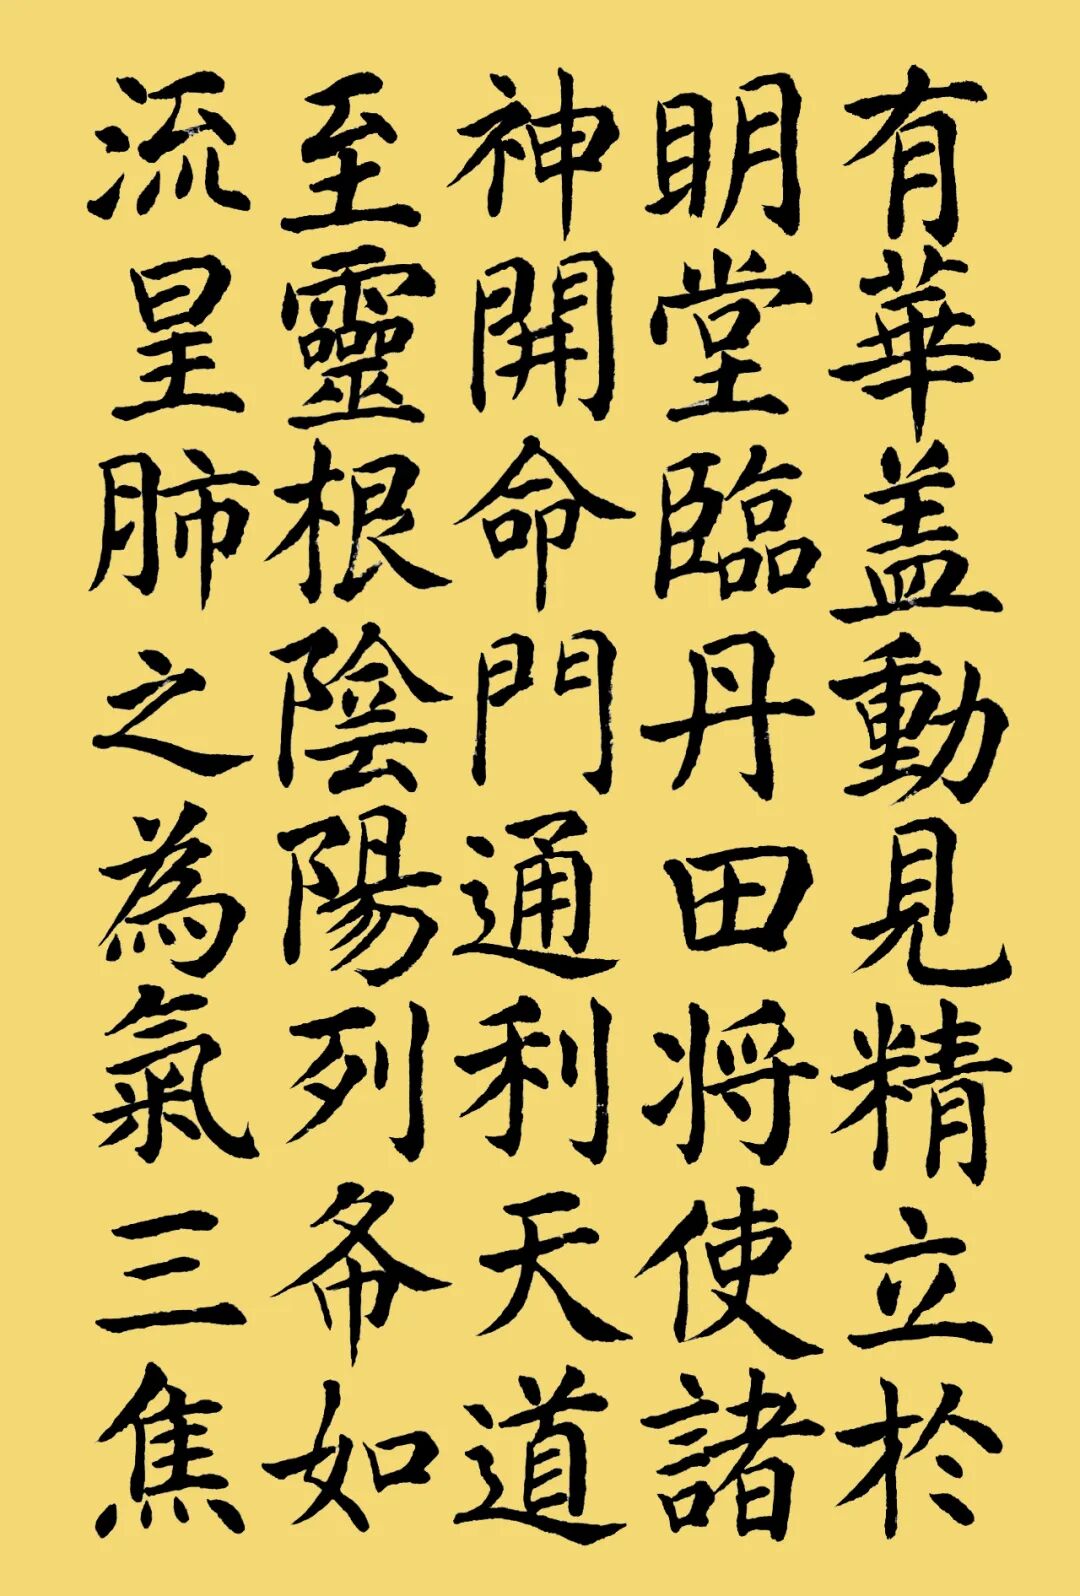 有華盖動見精立於
眀堂臨丹田将使諸
神開命門通利天道
至靈根陰陽列布如
流星肺之為氣三焦